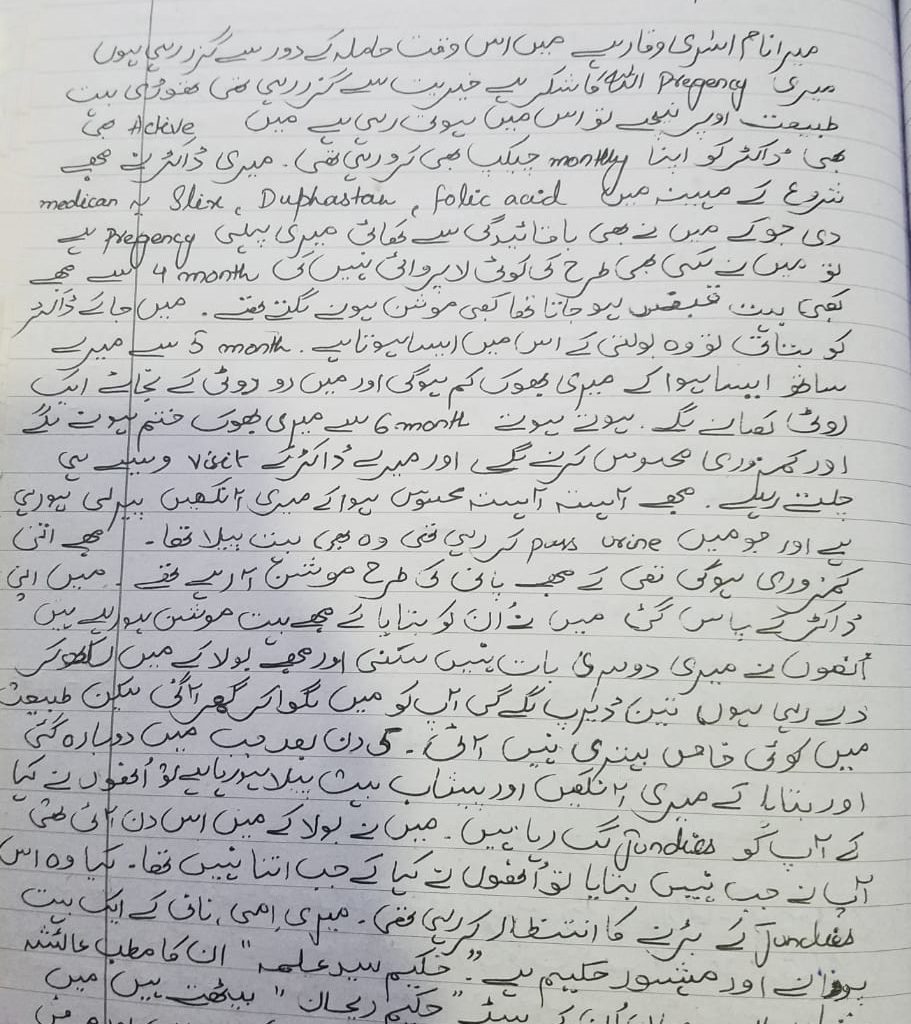 میرا نام اسری وقار ہے میں اس وقت حاملہ کے دور سے گزر رہی ہوں
میری Pregency اللہ کا شکر ہے خیریت سے گزر رہی تھی تھوڑی بہت
طبیعت اوپر نیچے تو اس میں ہوتی رہی ہے میں Active ہی
تھی ڈاکٹر کو اپنا monthly چیکپ بھی کروا رہی تھی۔ میری ڈاکٹر نے مجھے
شروع کے مہینہ میں folic acid ، Duphastan ، Slix medican
دی جو کے میں نے بھی باقائیدگی سے کھائی میری پہلی Pregency ہے
تو میں نے کسی بھی طرح کی کوئی لاپروائی نہیں کی 4 month سے مجھے
کبھی بہت قبض ہو جاتا تھا کبھی موشن ہونے لگتے تھے۔ میں جا کے ڈاکٹر
کو بتاتی تو وہ بولتی کے اس میں ایسا ہوتا ہے۔ 5 month سے میرے
ساتھ ایسا ہوا کے میری بھوک کم ہوگی اور میں دو روٹی کے بجائے ایک
روٹی کھانے لگے۔ ہوتے ہوتے 6 month سے میری بھوک ختم ہونے لگے
اور کمزوری محسوس کرنے لگے اور میرے ڈاکٹر کے visit ویسے ہی
چلتے رہے۔ مجھے آہستہ آہستہ محسوس ہوا کے میری آنکھیں پیلی ہو رہی
ہے اور جو میں pass urine کر رہی تھی وہ بھی بہت پیلا تھا۔ مجھے اتنی
کمزوری ہوگی تھی کے مجھے پانی کی طرح موشن آ رہے تھے۔ میں اپنی
ڈاکٹر کے پاس گئی میں نے اُن کو بتایا کے مجھے بہت موشن ہو رہے ہیں
اُنھوں نے میری دوسری بات نہیں سنی اور مجھے بولا کے میں لکھ کر
دے رہی ہوں تین ڈیرپ لگے گی آپ کو میں لگوا کر گھر آگئی لیکن طبیعت
میں کوئی خاص بہتری نہیں آئی۔ کی دن بعد جب میں دوبارہ گئی
اور بتایا کے میری آنکھیں اور پیشاب بہت پیلا ہو رہا ہے تو اُنھوں نے کہا
کے آپ کو Jundies لگ رہا ہیں۔ میں نے بولا کے میں اس دن آئی تھی
آپ نے جب نہیں بتایا تو اُنھوں نے کہا کے جب اتنا نہیں تھا۔ کیا وہ اس
Jundies کے بڑنے کا انتظار کر رہی تھی۔ میری امی، نانی کے ایک بہت
پورانے اور مشہور حکیم ہے "حکیم سید علمہ" ان کا مطب عائشہ
"حکیم ریحان" بیٹھتے ہیں میں